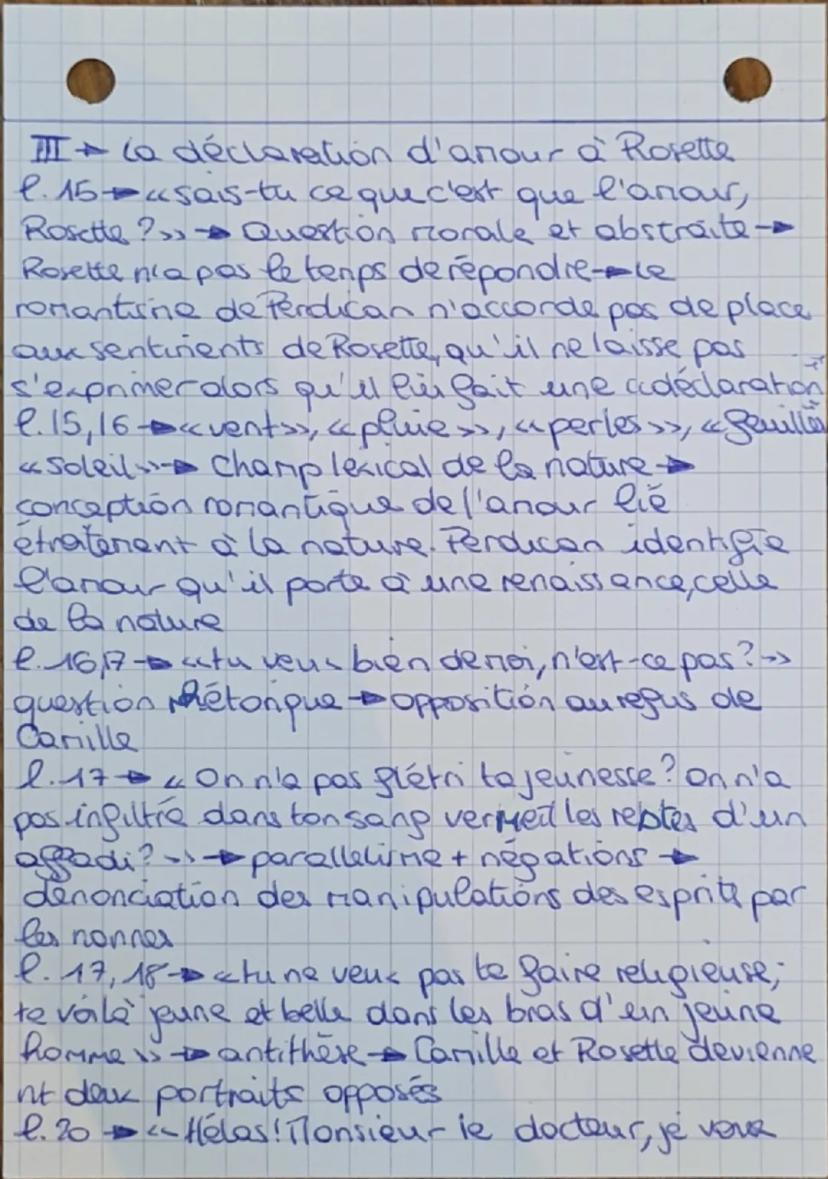 III → la déclaration d'amour à Rosette
l.15 → «sais-tu ce que c'est que l'amour,
Rosette?» → Question morale et abstraite →
Rosette n'a pas le temps de répondre → le
romantisme de Perdican n'accorde pas de place
aux sentiments de Rosette, qu'il ne laisse pas
s'exprimer alors qu'il lui fait une «déclaration»
l.15,16 → «vent», «pluie», «perles», «feuilles»
«soleil» → Champ lexical de la nature →
conception romantique de l'amour lié
étroitement à la nature. Perdican identifie
l'amour qu'il porte à une renaissance, celle
de la nature
l.16,17 → «tu veux bien de moi, n'est-ce pas?»
question rhétorique → opposition au refus de
Camille
l.17 → «On n'a pas flétri ta jeunesse? On n'a
pas infiltré dans ton sang vermeil les restes d'un
affadi?» → parallélisme + négations →
dénonciation des manipulations des esprits par
les nonnes
l.17,18 → «tu ne veux pas te faire religieuse;
te voilà jeune et belle dans les bras d'un jeune
homme» → antithèse → Camille et Rosette devienne
nt deux portraits opposés
l.20 → «Hélas! Monsieur le docteur, je vous